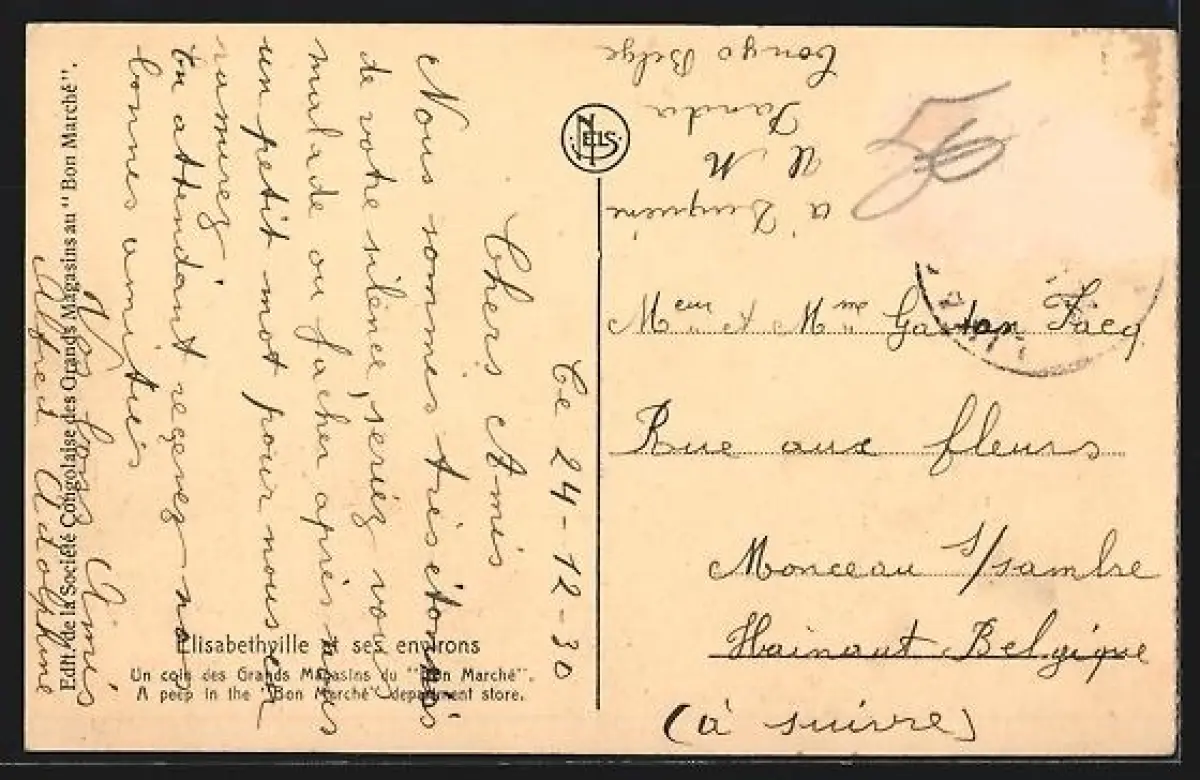 Ce 24-12-30
Chers Amis
Nous sommes très étonnés
de votre silence, seriez vous
malade ou facher après nous
un petit mot pour nous en
ramurez
En attendant reçevez nos
bonnes amitiés
Vos bons Amis
Alfred Adolphine
Edit. de la Société Congolaise des Grands Magasins au "Bon Marché".
Elisabethville et ses environs
Un coin des Grands Magasins du "Bon Marché".
A peep in the "Bon Marché" department store.
NELS
à
U M
Congo Belge
Meur et Mme Gaston Facq
Rue aux fleurs
Monceau s/sambre
Hainaut Belgique
(à suivre)